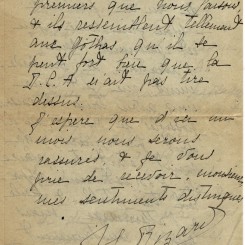 premiers que nous faisons
& ils ressemblent tellement
aux gothas, qu'il se
peut fort bien que la
D.C.A n'ait pas tiré
dessus.
J'espère que d'ici un
mois nous serons
rassurés, & je vous
prie de recevoir, monsieur
mes sentiments distingués